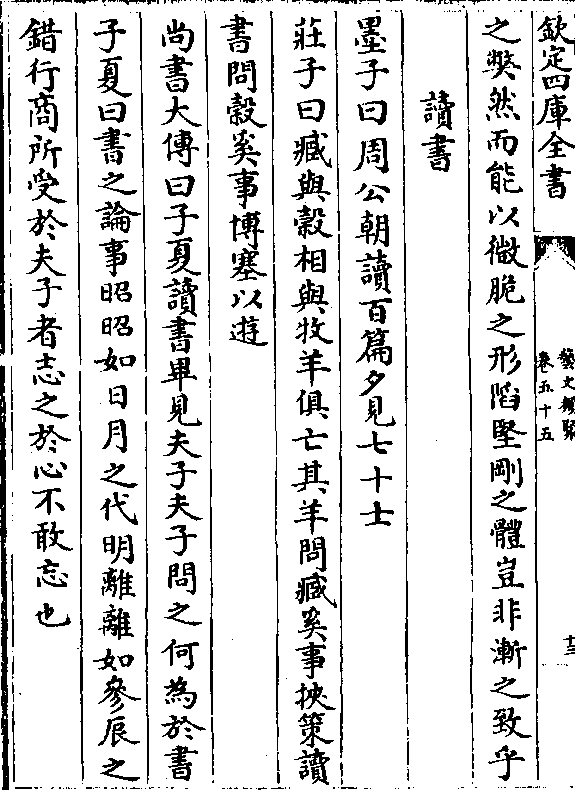 欽定四庫全書
藝文類聚
卷五十五
十三
之獘然而能以微脆之形陷堅剛之體豈非漸之致乎
讀書
墨子曰周公朝讀百篇夕見七十士
莊子曰臧與穀相與牧羊俱亡其羊問臧奚事挾策讀
書問穀奚事博塞以遊
尚書大傳曰子夏讀書畢見夫子夫子問之何為於書
子夏曰書之論事昭昭如日月之代明離離如參辰之
錯行商所受於夫子者志之於心不敢忘也